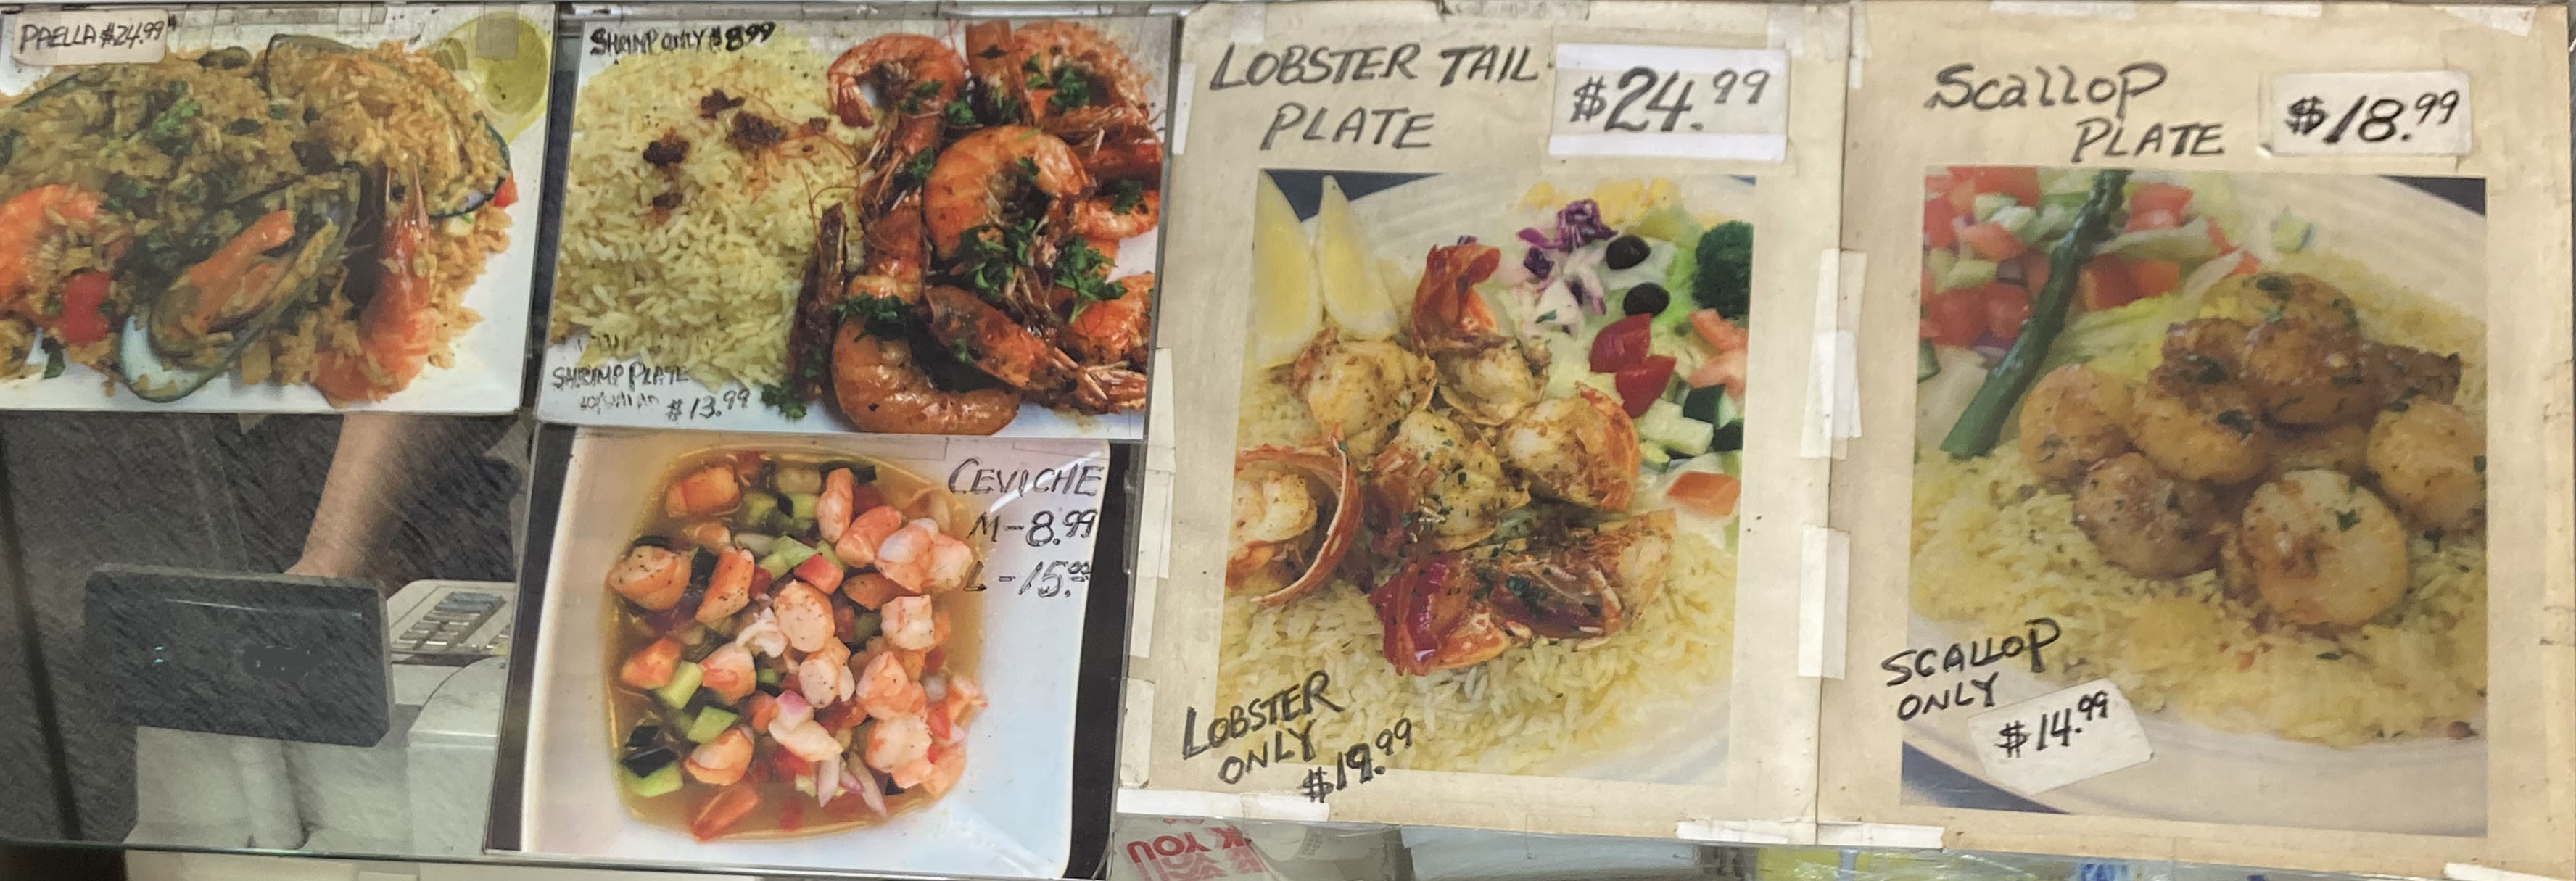 PAELLA $24.99
SHRIMP ONLY $8.99
SHRIMP PLATE
$13.99
CEVICHE
M-8.99
L-15.00
LOBSTER TAIL
PLATE
$24.99
LOBSTER
ONLY
$19.99
Scallop
PLATE
$18.99
SCALLOP
ONLY
$14.99
YOU